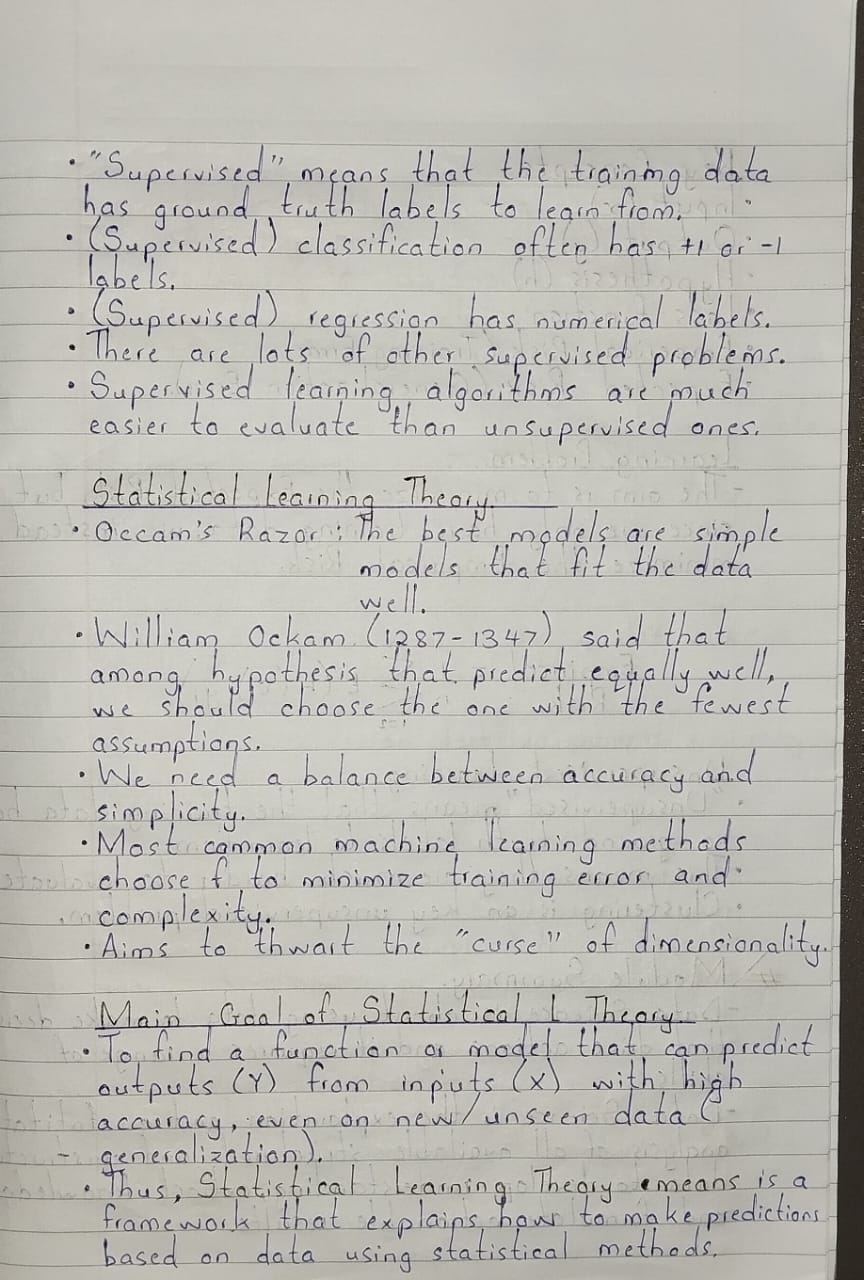 • "Supervised" means that the training data
has ground truth labels to learn from.
• (Supervised) classification often has +1 or -1
labels.
• (Supervised) regression has numerical labels.
• There are lots of other supervised problems.
• Supervised learning algorithms are much
easier to evaluate than unsupervised ones.
Statistical Learning Theory
• Occam's Razor: The best models are simple
models that fit the data
well.
• William Ockam (1287-1347) said that
among hypothesis that predict equally well,
we should choose the one with the fewest
assumptions.
• We need a balance between accuracy and
simplicity.
• Most common machine learning methods
choose f to minimize training error and
complexity.
• Aims to thwart the "curse" of dimensionality.
Main Goal of Statistical L Theory
• To find a function or model that can predict
outputs (Y) from inputs (X) with high
accuracy, even on new/unseen data (
- generalization).
• Thus, Statistical Learning Theory means is a
framework that explains how to make predictions
based on data using statistical methods.